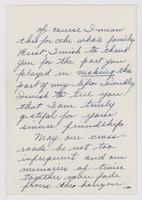 Of course I mean
this for the whole family.
First, I wish to thank
you for the part you
played in making this
part of my life. Secondly,
I wish to tell you
that I am truly
grateful for your
sincere friendship.
May our cross-
roads be not too
infrequent and our
memories of times
together never fade
from the